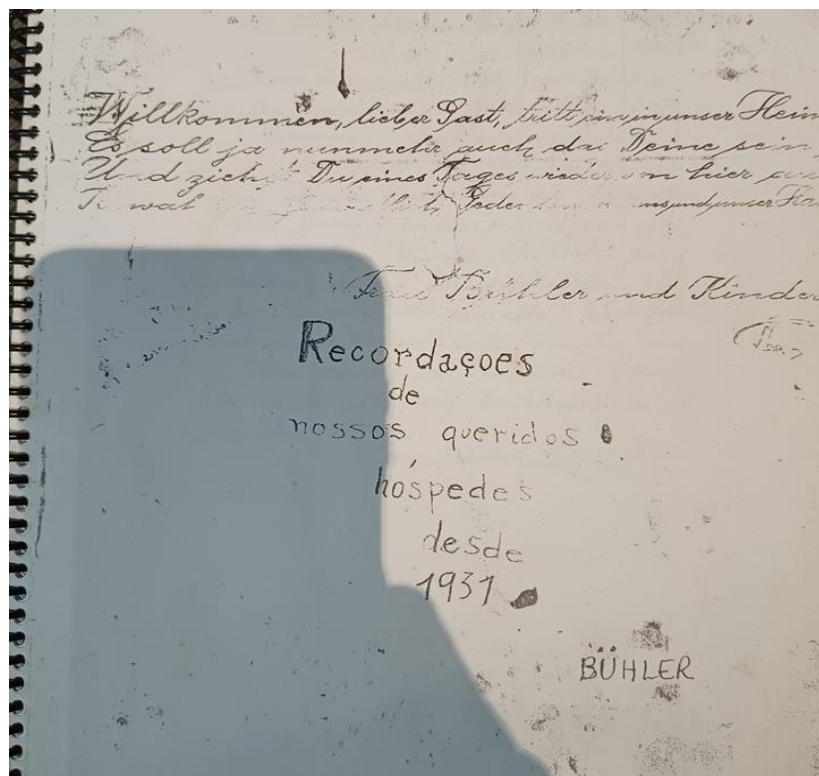 Willkommen, lieber Gast, tritt ein in unser Heim
Es soll ja nunmehr auch das Deine sein,
Und ziehst Du eines Tages wieder von hier
uns und unser
Frau Bühler und Kinder
Recordaçoes
de
nossos queridos
hóspedes
desde
1931
BÜHLER